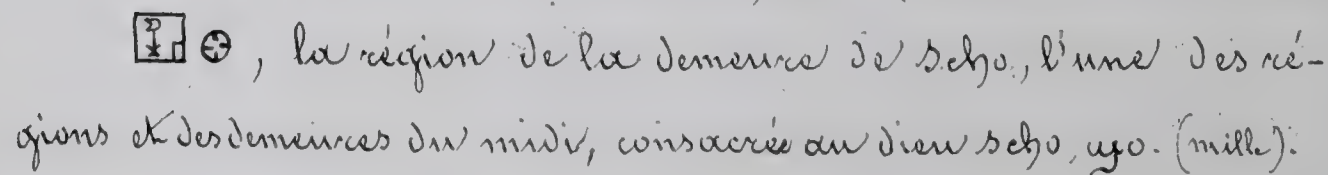 , la région de la demeure de Scho, l'une des ré-
gions et des demeures du midi, consacrée au dieu Scho, ϣο. (mille).